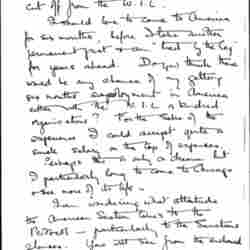 cut off from the W.I.L.
I should love to come to America
for six months, before I take another
permanent post & am tied by the leg
for years ahead. Do you think there
would be any chance of my getting
six months employment in America
either with the W.I.L. or kindred
organisations? For the sake of the
experience I could accept quite a
small salary on the top of expenses.
Perhaps this is only a dream but
I particularly long to come to Chicago
& see more of its life.
I am wondering what attitude
the American Section takes to the
Protocol — particularly to the Sanctions
clauses. You will see from the enclosed